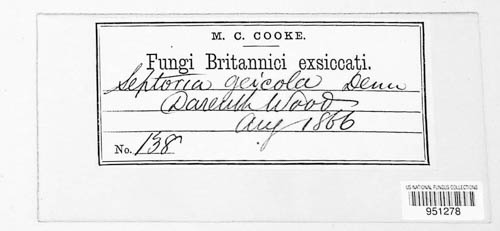 M. C. COOKE.
Fungi Britannici exsiccati.
Septoria geicola
Darenth Wood
Aug 1866
No. 138
US NATIONAL FUNGUS COLLECTIONS
951278